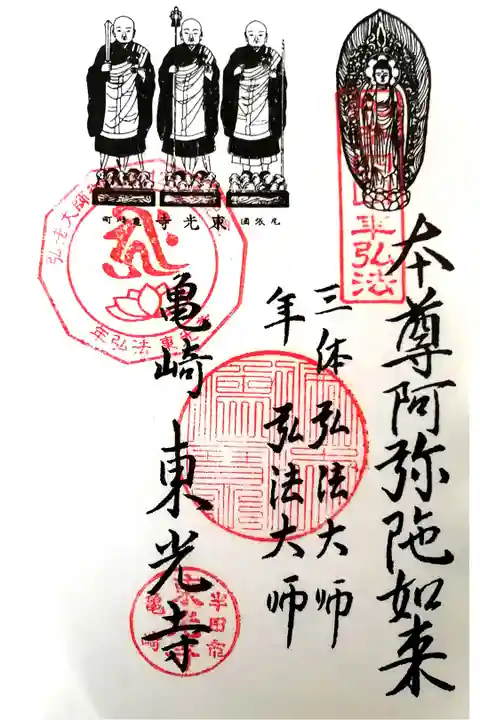 本尊阿弥陀如来
三体弘法大师
年弘法大师
亀崎東光寺
年弘法
町崎亀寺光東国張尾
弘法大師
東法弘年
半田市
亀崎